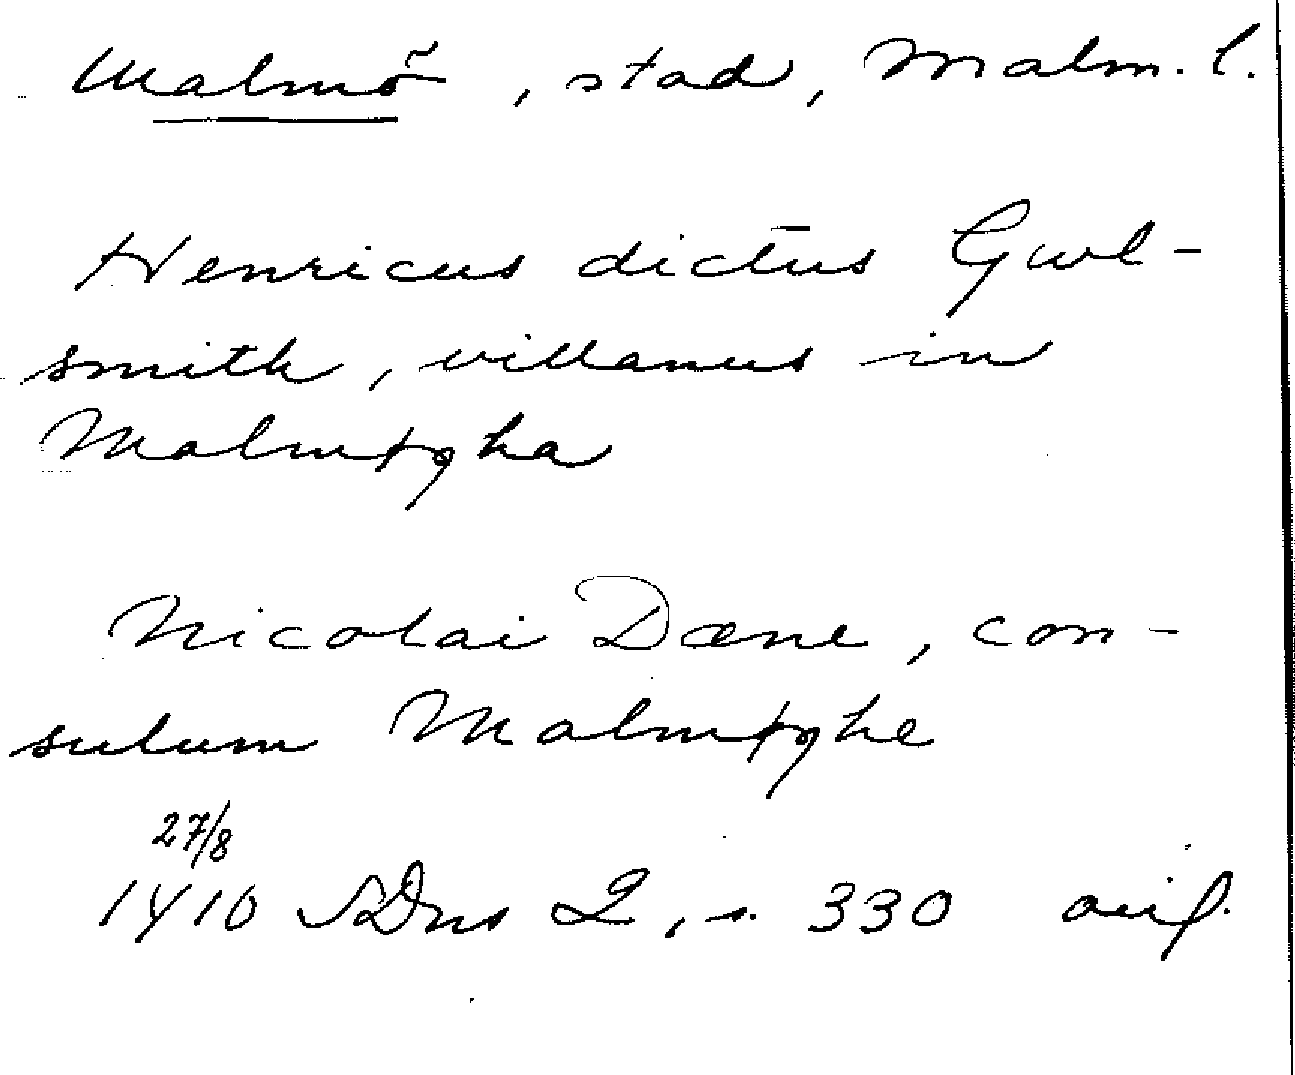 Malmö, stad, Malm. l.
Henricus dictus Gwl-
smith, villanus in
Malmøgha
Nicolai Dæne, con-
sulum Malmøghe
27/8
1410 SDns 2, s. 330